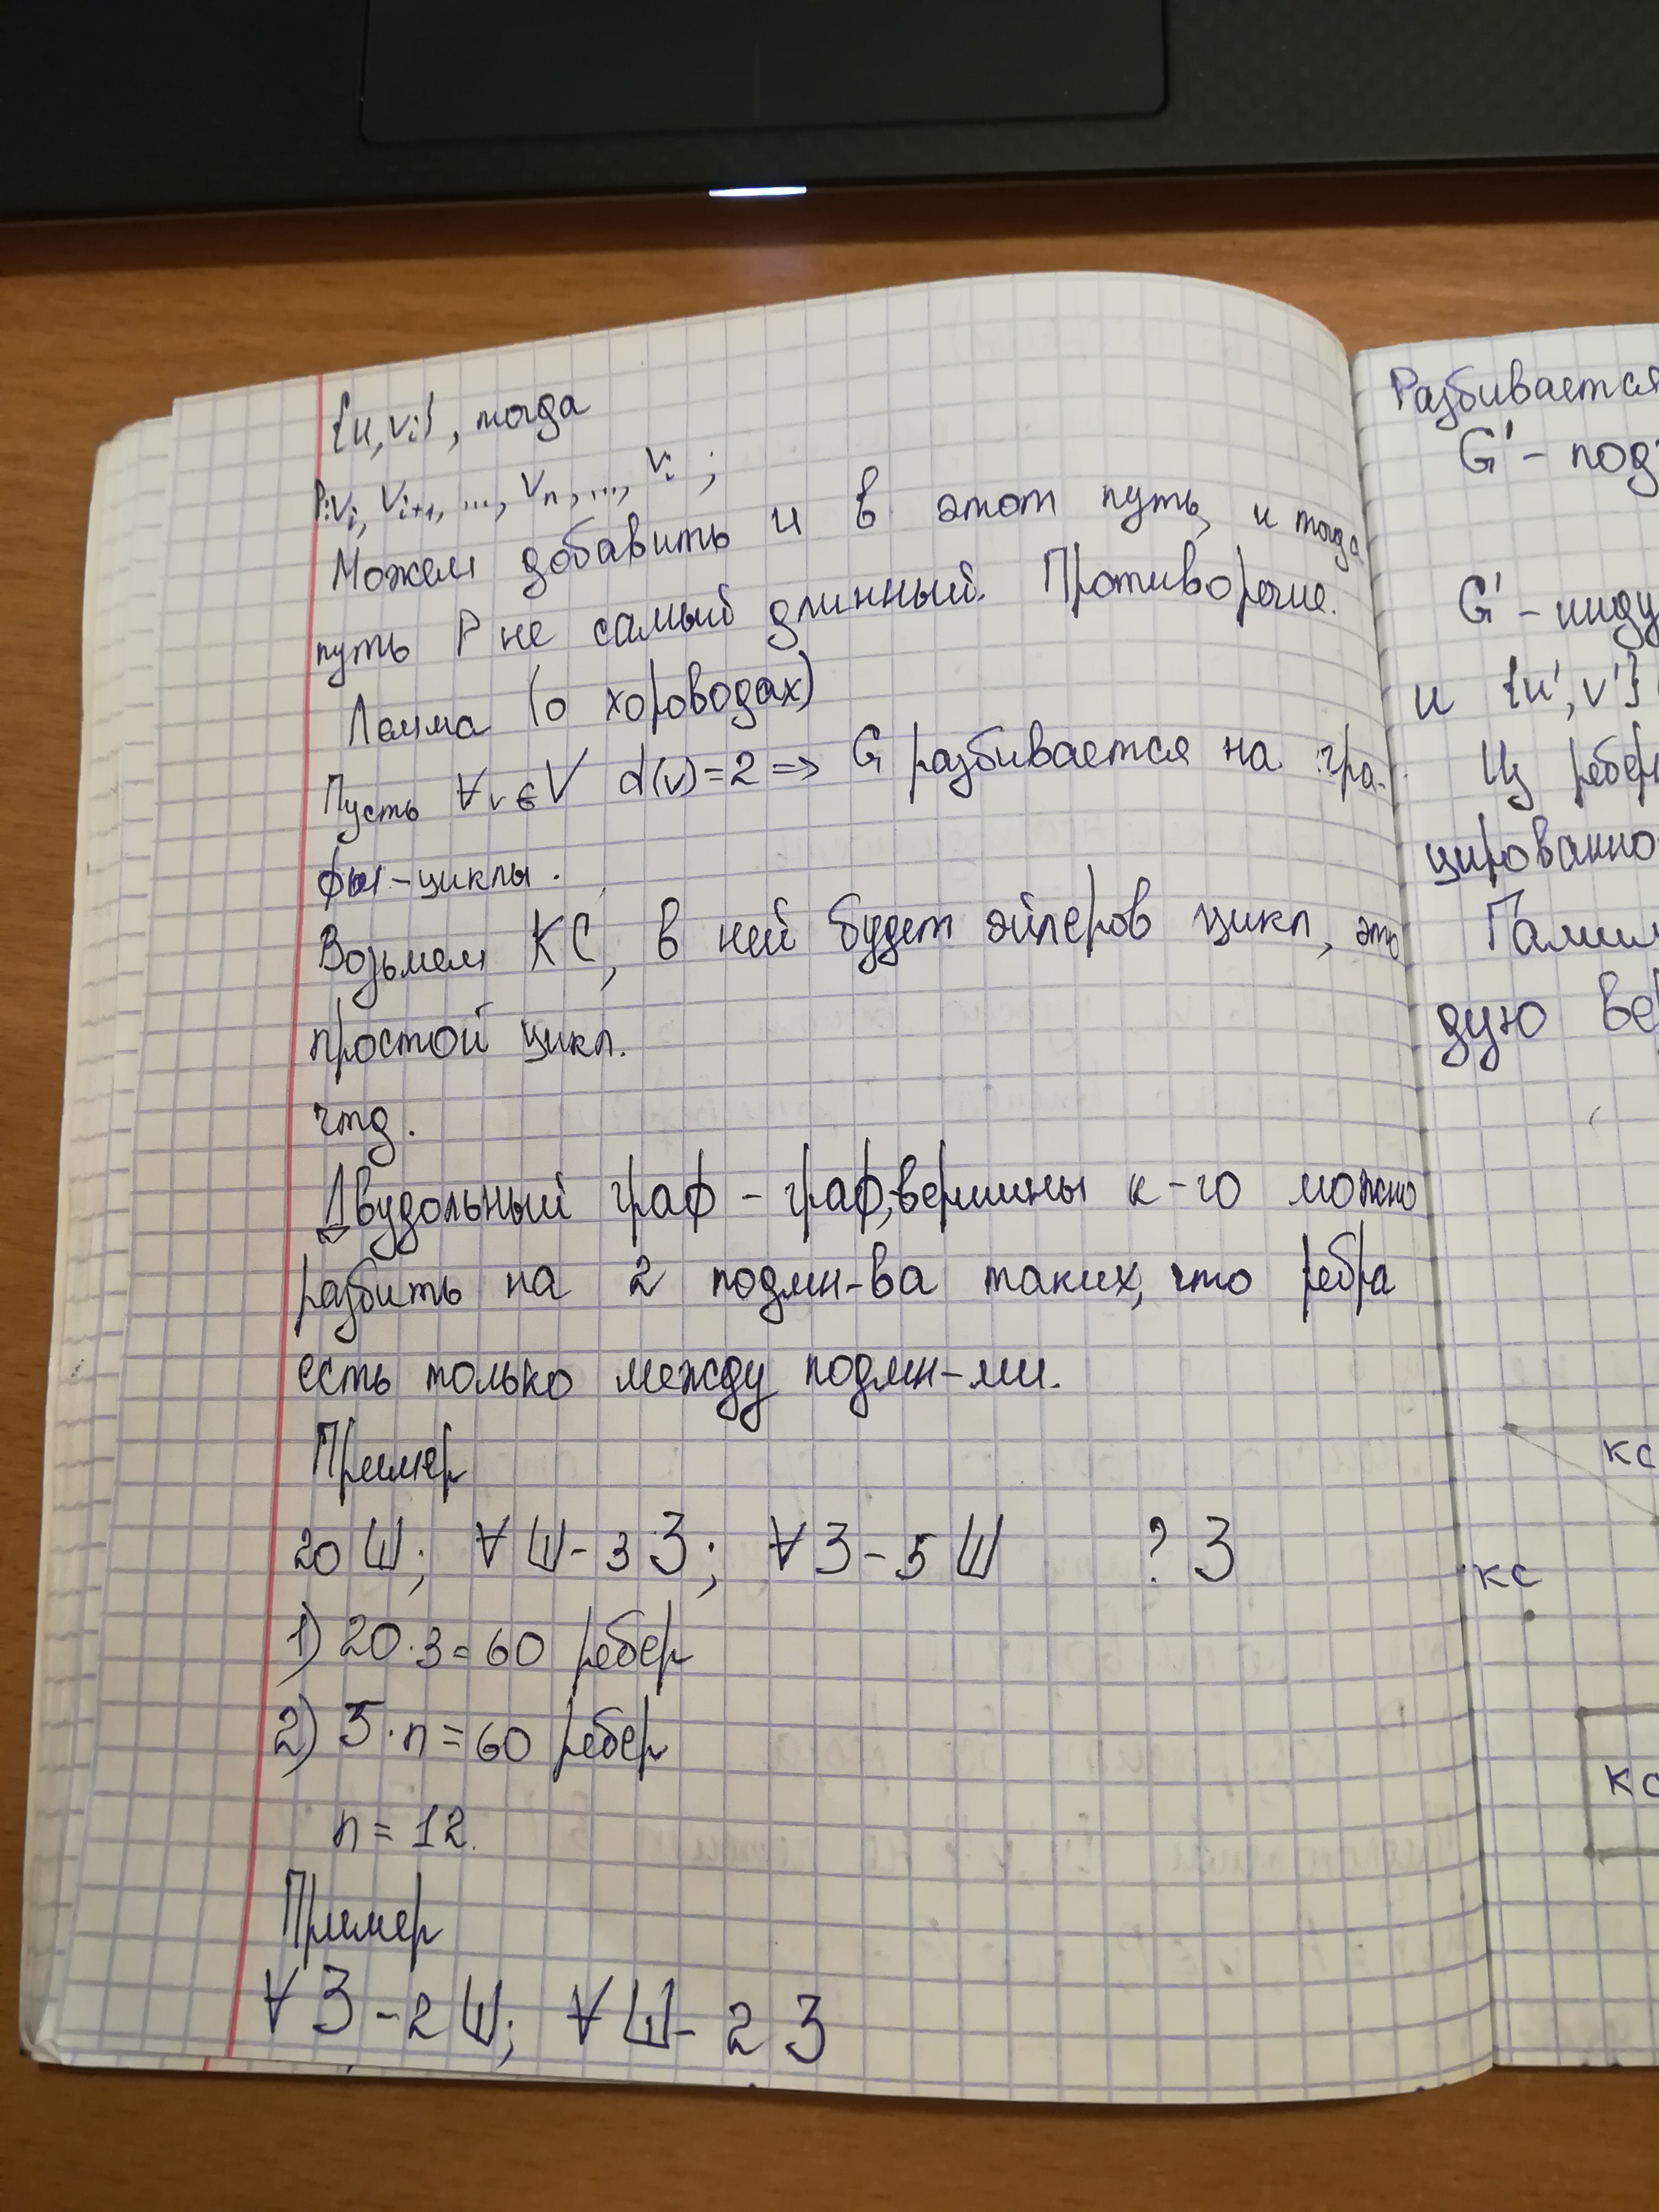 {u,vᵢ}, тогда
P: vᵢ, vᵢ₊₁, ..., vₙ, ..., vᵢ ;
Можем добавить u в этот путь, и тогда
путь P не самый длинный. Противоречие.
Лемма (о хороводах)
Пусть ∀v∈V d(v)=2 => G разбивается на гра-
фы-циклы.
Возьмем КС, в ней будет эйлеров цикл, это
простой цикл.
чтд.
Двудольный граф - граф, вершины к-го можно
разбить на 2 подмн-ва таких, что ребра
есть только между подмн-ми.
Пример
20 Ш; ∀ Ш - 3 З; ∀ З - 5 Ш ? З
1) 20·3=60 ребер
2) 5·n=60 ребер
n = 12.
Пример
∀ З - 2 Ш; ∀ Ш - 2 З
Разбивается
G' -
G' -
и {u', v'}
Из ребер
цированно
дую
КС
КС
КС